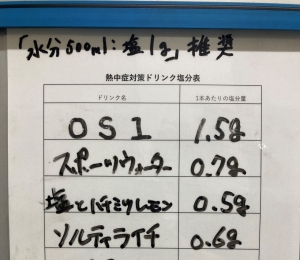 「水分500ml:塩1g」推奨
熱中症対策ドリンク塩分表
ドリンク名 1本あたりの塩分量
OS1 1.5g
スポーツウォーター 0.7g
塩とハチミツレモン 0.5g
ソルティライチ 0.6g